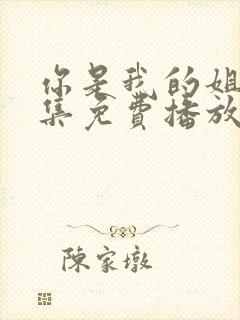 你是我的姐
集免費播放
陳家墩